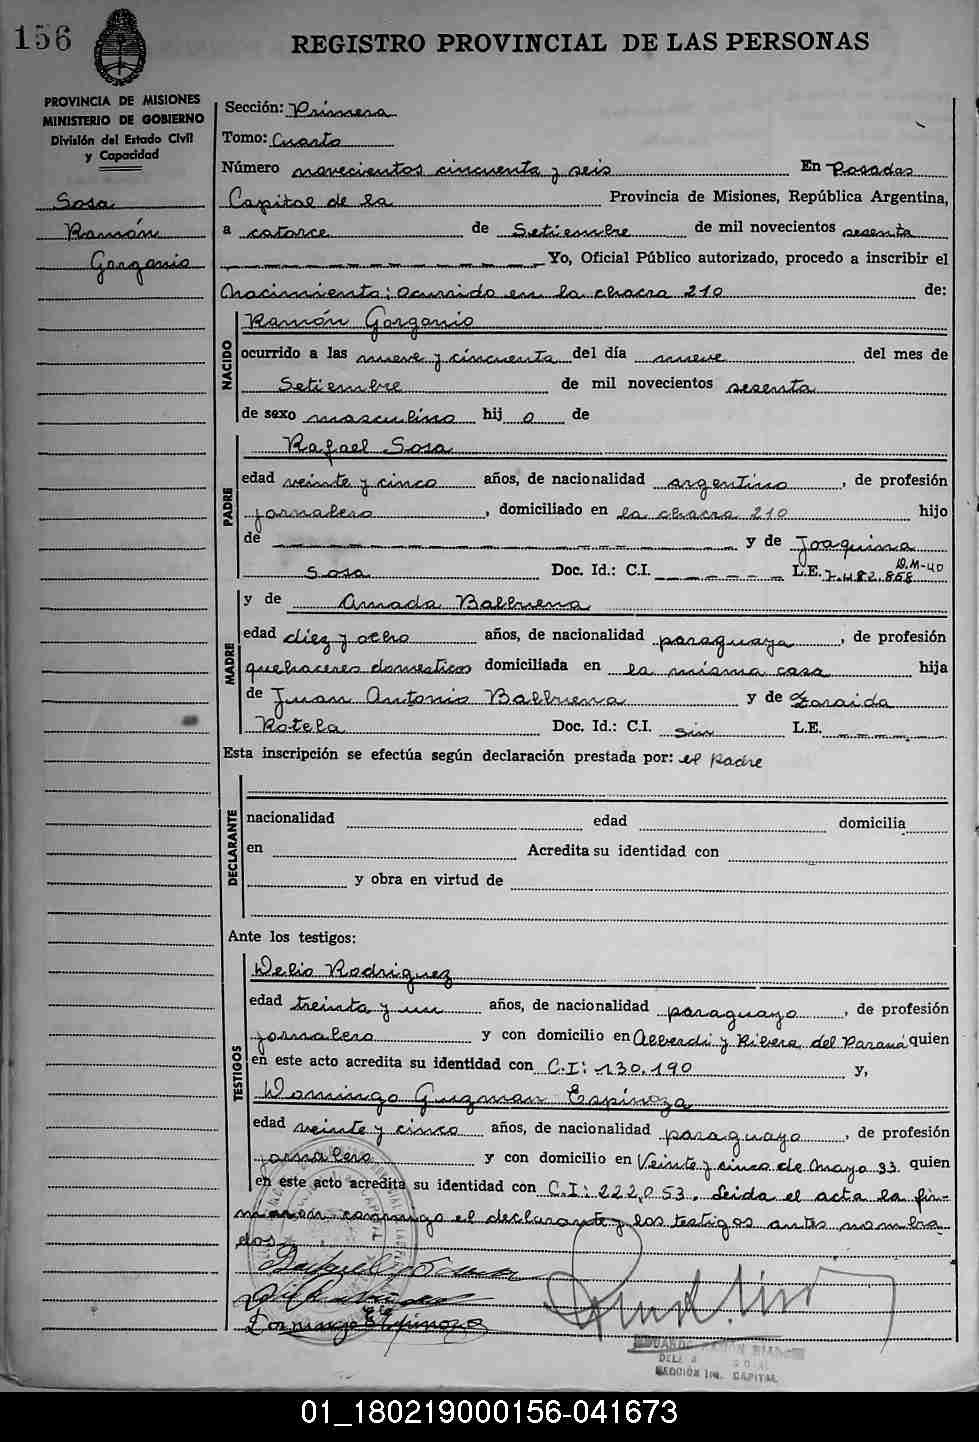 156
REGISTRO PROVINCIAL DE LAS PERSONAS
PROVINCIA DE MISIONES
MINISTERIO DE GOBIERNO
División del Estado Civil
y Capacidad
Sosa
Ramón
Gorgonio
Sección: Primera
Tomo: Cuarto
Número novecientos cincuenta y seis En Posadas
Capital de la Provincia de Misiones, República Argentina,
a catorce de Setiembre de mil novecientos sesenta
Yo, Oficial Público autorizado, procedo a inscribir el
Nacimiento; ocurrido en la chacra 210 de:
NACIDO
Ramón Gorgonio
ocurrido a las nueve y cincuenta del día nueve del mes de
Setiembre de mil novecientos sesenta
de sexo masculino hij o de
PADRE
Rafael Sosa
edad veinte y cinco años, de nacionalidad argentino, de profesión
jornalero, domiciliado en la chacra 210 hijo
de y de Joaquina
Sosa Doc. Id.: C.I. L.E. 7.482.858 D.M-40
MADRE
y de Amada Balbuena
edad diez y ocho años, de nacionalidad paraguaya, de profesión
quehaceres domesticos domiciliada en la misma casa hija
de Juan Antonio Balbuena y de Zoraida
Rotela Doc. Id.: C.I. sin L.E.
Esta inscripción se efectúa según declaración prestada por: el padre
DECLARANTE
nacionalidad edad domicilia
en Acredita su identidad con
y obra en virtud de
Ante los testigos:
TESTIGOS
Delio Rodriguez
edad treinta y un años, de nacionalidad paraguayo, de profesión
jornalero y con domicilio en Alberdi y Ribera del Paraná quien
en este acto acredita su identidad con C.I: 130.190 y,
Domingo Guzman Espinoza
edad veinte y cinco años, de nacionalidad paraguayo, de profesión
jornalero y con domicilio en Veinte y cinco de Mayo 33 quien
en este acto acredita su identidad con C.I: 222.053. Leida el acta la fir-
maron conmigo el declarante y los testigos antes nombra-
dos.
Domingo Espinoza
SECCIÓN 1ra. CAPITAL
01_180219000156-041673